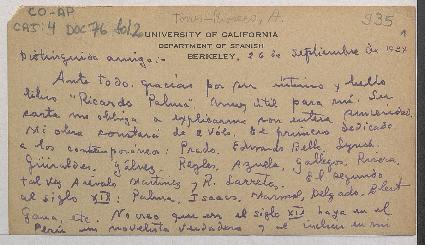 CO-AP
CAJ: 4 DOC 76 fol 2
Torres-Rioseco, A.
935
UNIVERSITY OF CALIFORNIA
DEPARTMENT OF SPANISH
BERKELEY, 26 de Septiembre de 193
Distinguido amigo:-
Ante todo, gracias por su último y bello
libro "Ricardo Palma" muy útil para mí. Su
carta me obliga a explicarme con entera sinceridad.
Mi obra constará de 2 vols. El primero dedicado
a los contemporáneos: Prado, Edwards Bello, Lynch,
Güiraldes, Gálvez, Reyles, Azuela, Gallegos, Rivera,
tal vez Arévalo Martínez y R. Larreta. El segundo
al siglo XIX: Palma, Isaacs, Marmol, Delgado, Blest
Gana, etc. No creo que en el siglo XIX haya en el
Perú un novelista verdadero y al incluir en mi